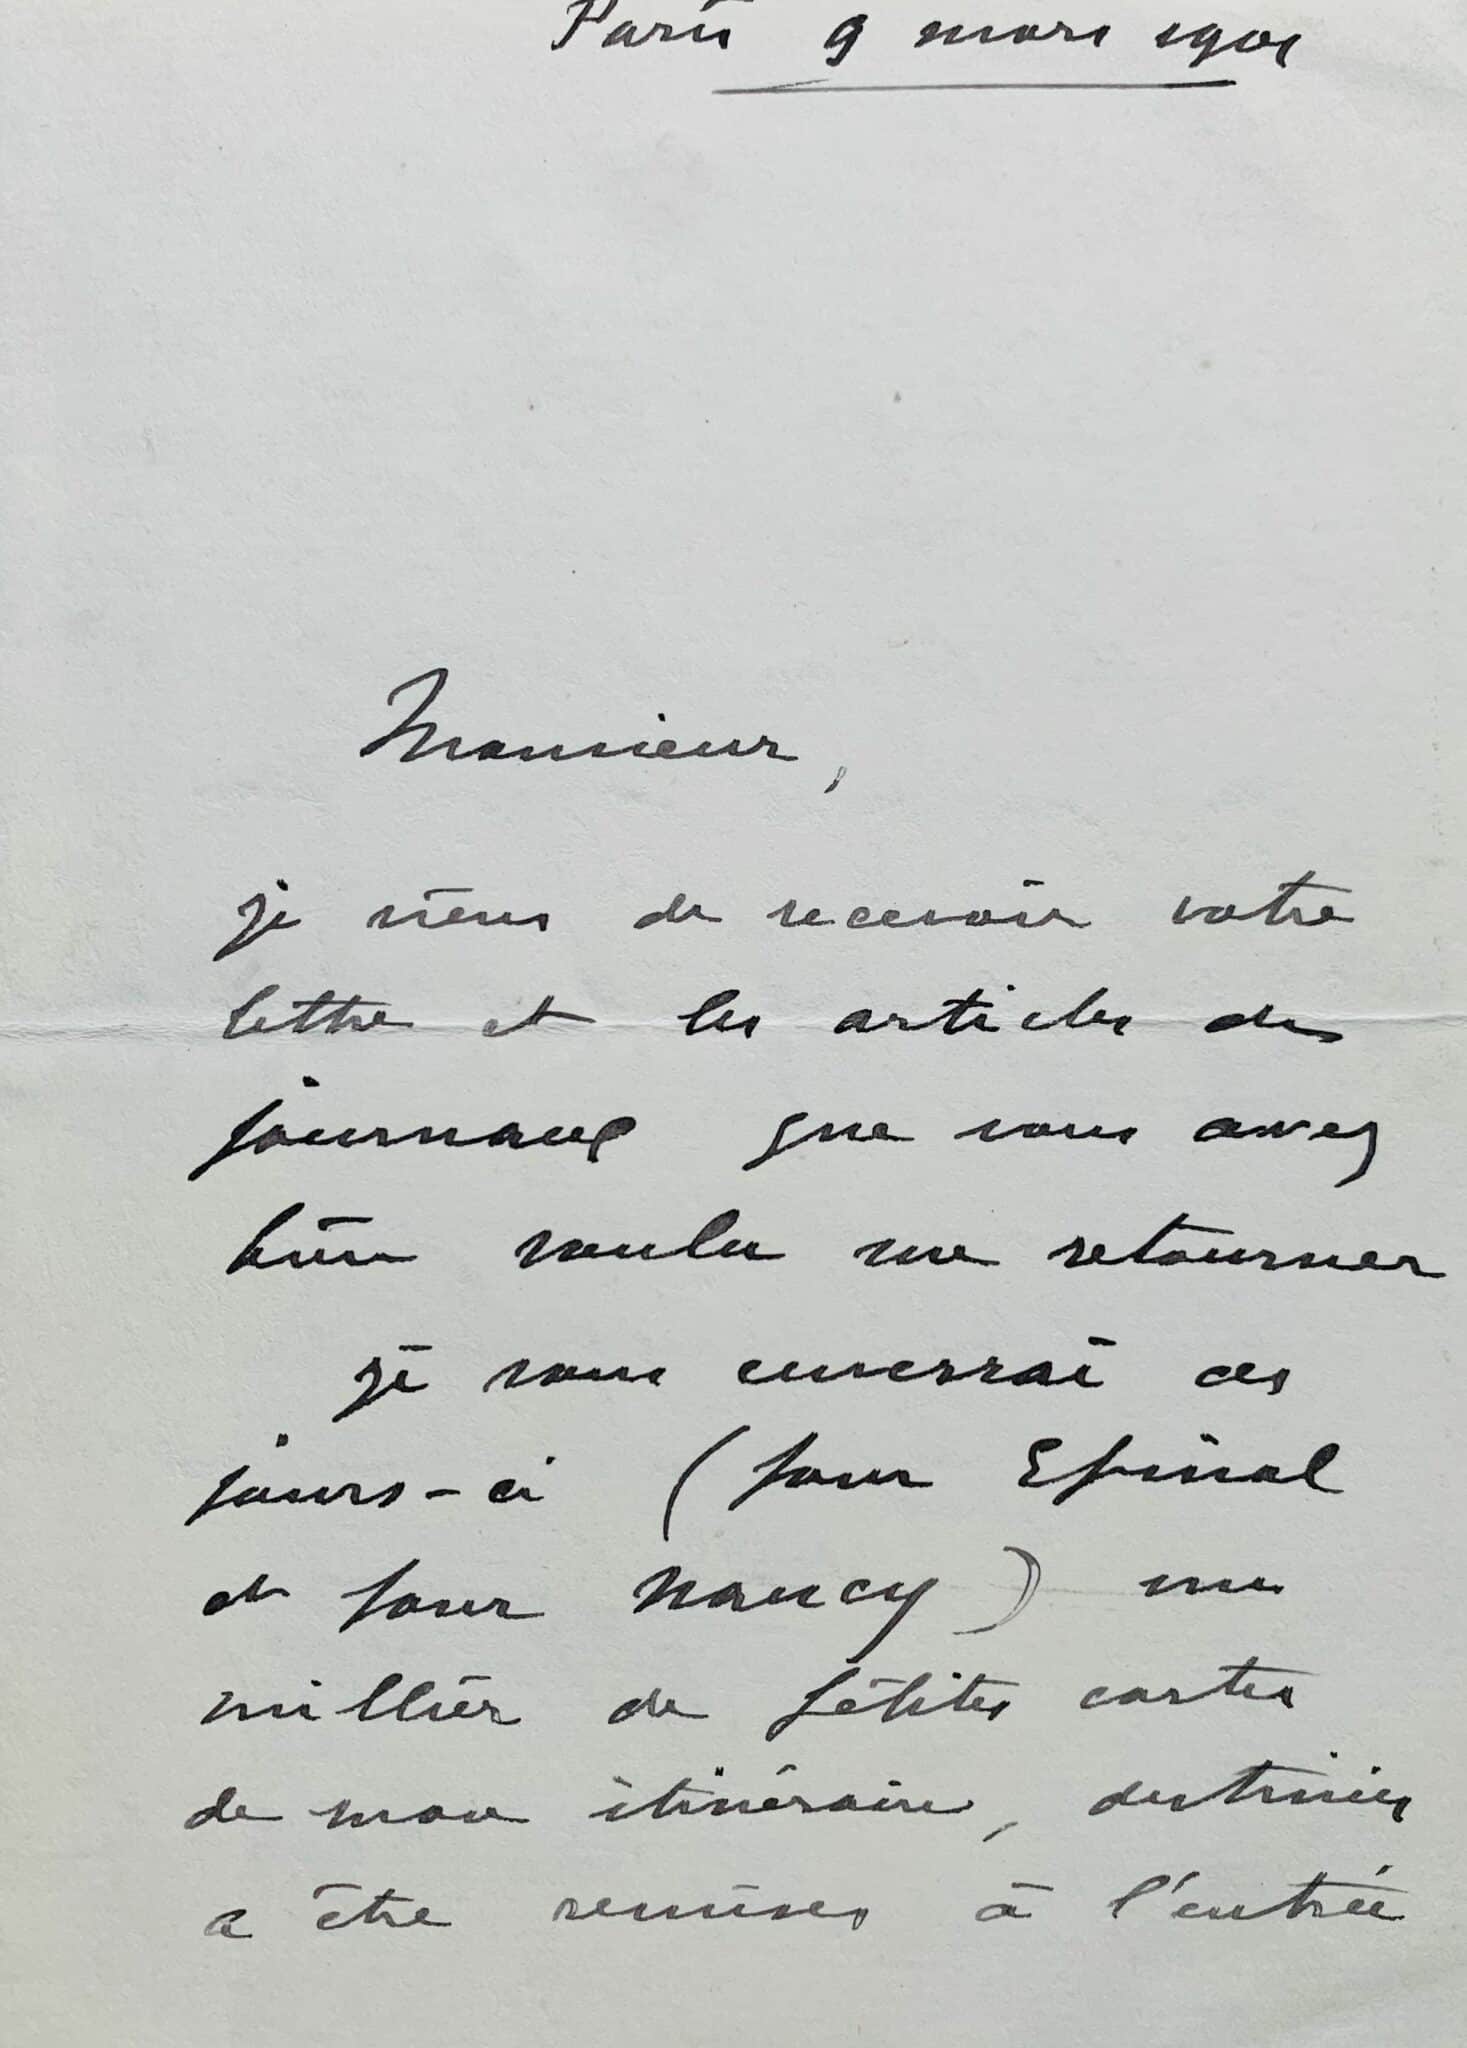 Paris 9 mars 1901
Monsieur,
je viens de recevoir votre
lettre et les articles des
journaux que vous avez
bien voulu me retourner
je vous enverrai ces
jours-ci (pour Epinal
et pour Nancy) un
millier de petites cartes
de mon itinéraire, destinées
a être remises à l'entrée